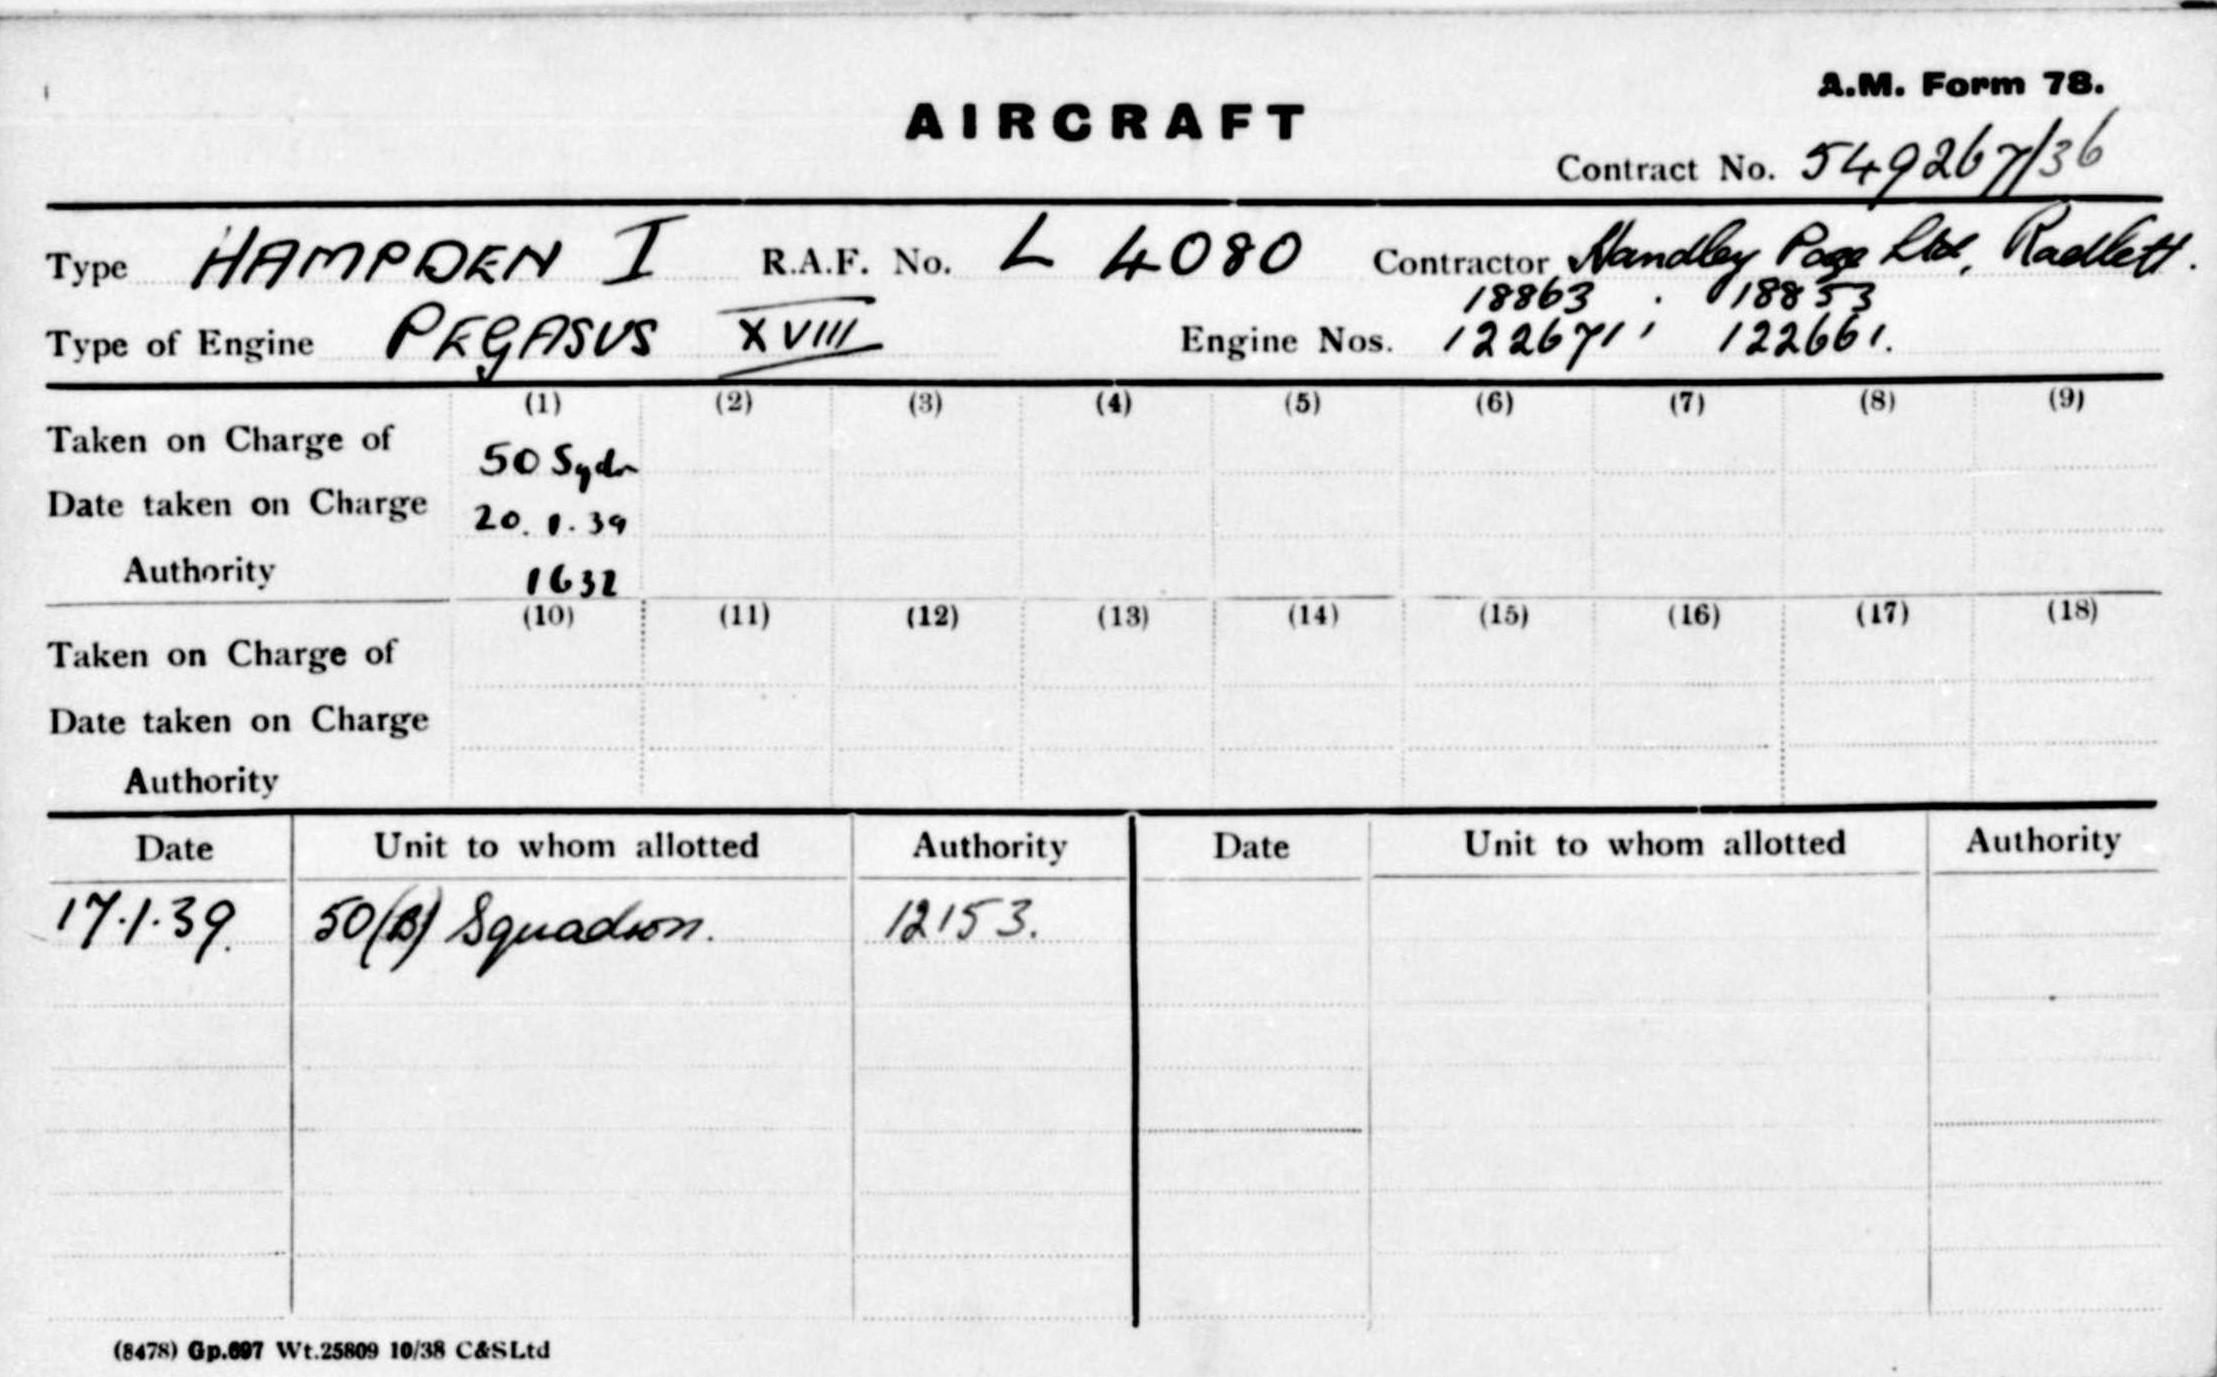 A.M. Form 78.
AIRCRAFT
Contract No. 549267/36
Type HAMPDEN I R.A.F. No. L 4080 Contractor Handley Page Ltd, Radlett.
18863 . 18853
Type of Engine PEGASUS XVIII Engine Nos. 122671 ' 122661.
(1) (2) (3) (4) (5) (6) (7) (8) (9)
Taken on Charge of 50 Sqdn
Date taken on Charge 20.1.39
Authority 1632
(10) (11) (12) (13) (14) (15) (16) (17) (18)
Taken on Charge of
Date taken on Charge
Authority
Date Unit to whom allotted Authority Date Unit to whom allotted Authority
17.1.39. 50(B) Squadron. 12153.
(8478) Gp.697 Wt.25809 10/38 C&SLtd